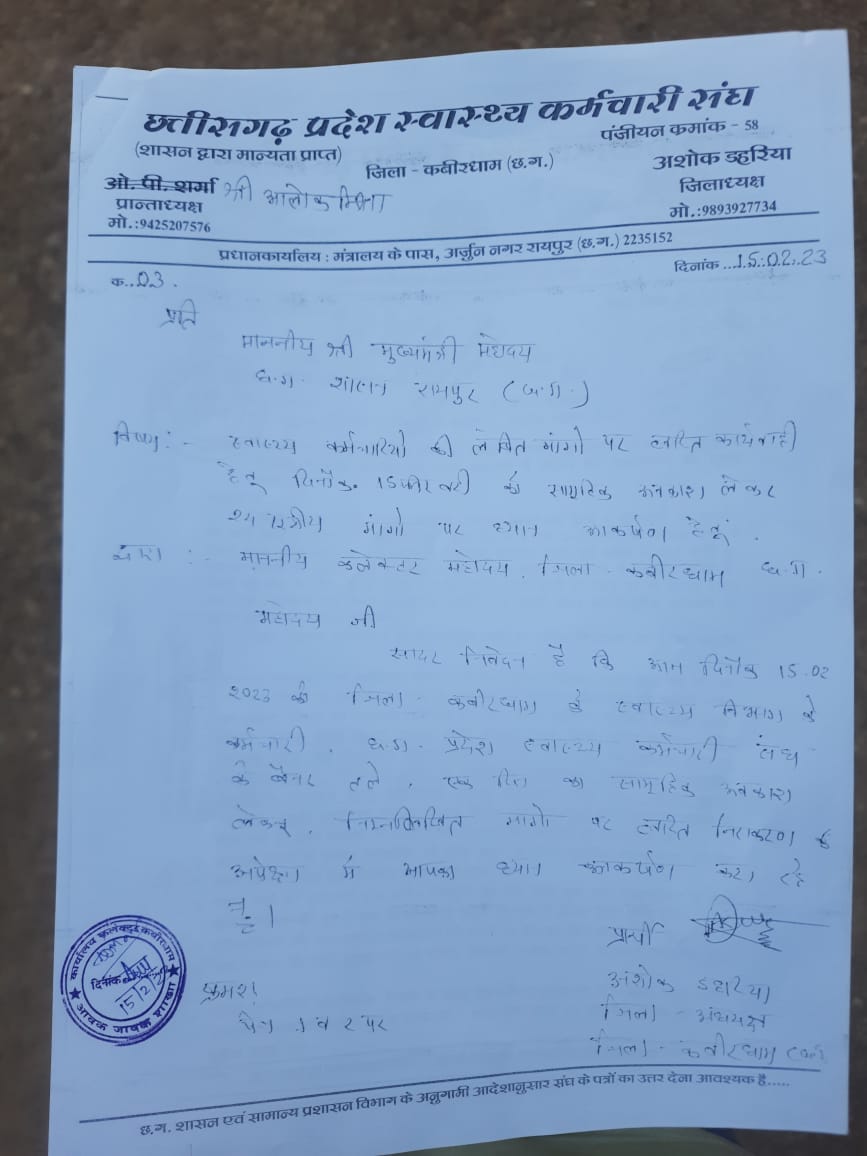 छत्तीसगढ़ प्रदेश स्वास्थ्य कर्मचारी संघ
पंजीयन कमांक - 58
(शासन द्वारा मान्यता प्राप्त)
जिला - कबीरधाम (छ.ग.)
ओ. पी. शर्मा श्री आलोक मिश्रा
प्रान्ताध्यक्ष
मो.:9425207576
अशोक डहरिया
जिलाध्यक्ष
मो.:9893927734
प्रधानकार्यालय : मंत्रालय के पास, अर्जुन नगर रायपुर (छ.ग.) 2235152
क...03.
दिनांक ...15.02.23
प्रति
माननीय श्री मुख्यमंत्री महोदय
छ.ग. शासन रायपुर (छ.ग.)
विषय :- स्वास्थ्य कर्मचारियो की लंबित मांगो पर त्वरित कार्यवाही
हेतु दिनाँक 15 फरवरी को सामूहिक अवकाश लेकर
मांगो पर ध्यान आकर्षण हेतु.
द्वारा :- माननीय कलेक्टर महोदय, जिला - कबीरधाम छ.ग.
महोदय जी
सादर निवेदन है कि आज दिनाँक 15.02
2023 को जिला - कबीरधाम के स्वास्थ्य विभाग के
कर्मचारी, छ.ग. प्रदेश स्वास्थ्य कर्मचारी संघ
के बैनर तले, एक दिन का सामूहिक अवकाश
लेकर, निम्नलिखित मांगो पर त्वरित निराकरण के
अपेक्षा में आपका ध्यान आकर्षण करा रहे
है।
प्रार्थी
अशोक डहरिया
जिला - अध्यक्ष
जिला - कबीरधाम
क्रमशः
पेज 1 व 2 पर
कार्यालय कलेक्टर कबीरधाम
दिनांक
15/2/
आवक जावक शाखा
छ.ग. शासन एवं सामान्य प्रशासन विभाग के अनुगामी आदेशानुसार संघ के पत्रों का उत्तर देना आवश्यक है.....